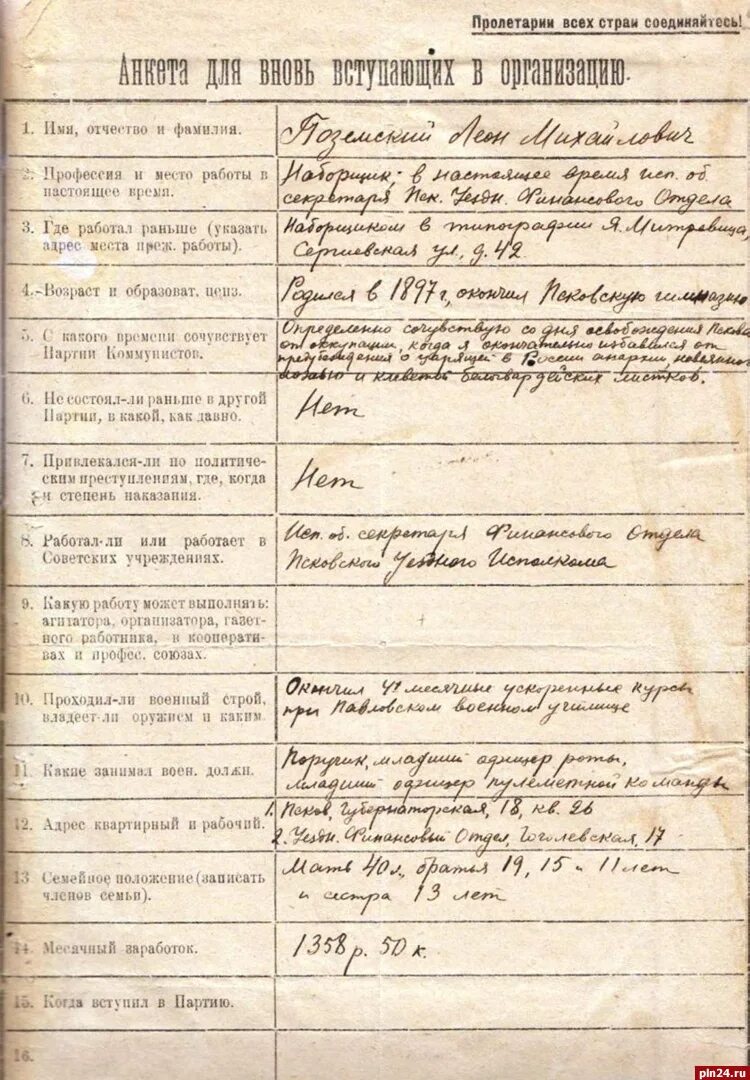 Пролетарии всех стран соединяйтесь!
Анкета для вновь вступающих в организацию.
1. Имя, отчество и фамилия.
Поземский Леон Михайлович
2. Профессия и место работы в
настоящее время.
Наборщик; в настоящее время исп. об.
секретаря Пск. Уездн. Финансового Отдела
3. Где работал раньше (указать
адрес места преж. работы).
Наборщиком в типографии Я. Митревица,
Сергиевская ул., д. 42
4. Возраст и образоват. ценз.
Родился в 1897 г., окончил Псковскую гимназию
5. С какого времени сочувствует
Партии Коммунистов.
Определенно сочувствую со дня освобождения Пскова
от оккупации, когда я окончательно избавился от
предубеждения о царящей в России анархии, навеянного
и клеветой белогвардейских листков.
6. Не состоял-ли раньше в другой
Партии, в какой, как давно.
Нет
7. Привлекался-ли по политиче-
ским преступлениям, где, когда
и степень наказания.
Нет
8. Работал-ли или работает в
Советских учреждениях.
Исп. об. секретаря Финансового Отдела
Псковского Уездного Исполкома
9. Какую работу может выполнять:
агитатора, организатора, газет-
ного работника, в кооперати-
вах и профес. союзах.
10. Проходил-ли военный строй,
владеет-ли оружием и каким
Окончил 4х месячные ускоренные курсы
при Павловском военном училище
11. Какие занимал воен. должн.
Поручик, младший офицер роты,
младший офицер пулеметной команды
12. Адрес квартирный и рабочий.
1. Псков, Губернаторская, 18, кв. 26
2. Уездн. Финансовый Отдел, Гоголевская, 17
13. Семейное положение (записать
членов семьи).
Мать 40 л., братья 19, 15 и 11 лет
и сестра 13 лет
14. Месячный заработок.
1358 р. 50 к.
15. Когда вступил в Партию.
16.
pln24.ru